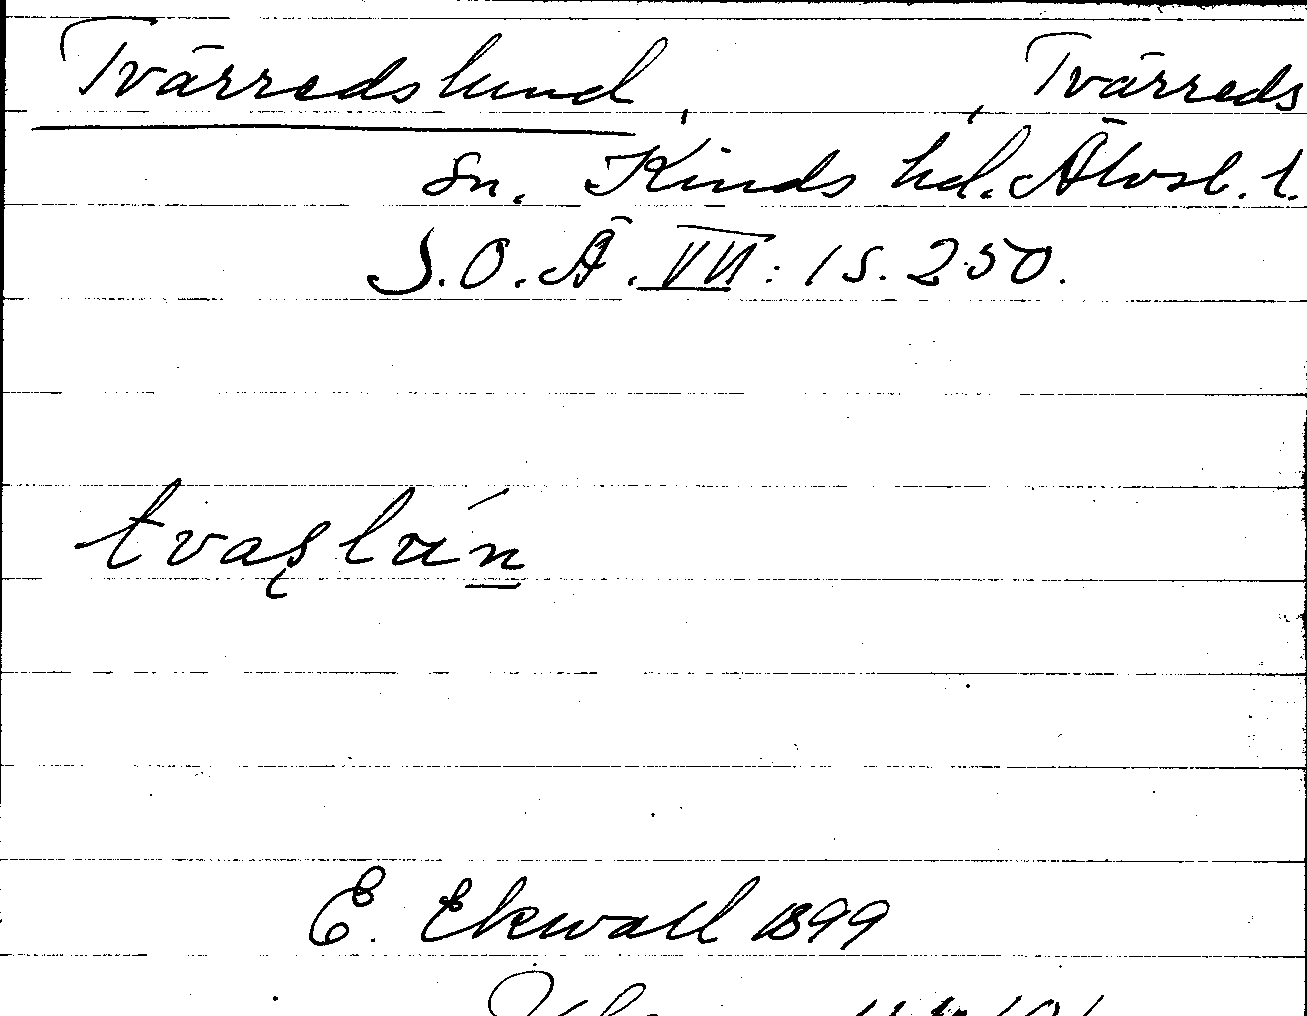 Tvärredslund, , Tvärreds
sn. Kinds hd. Älvsb. l.
S.O.Ä. VII: 1 s. 250.
tvaşlún
E. Ekwall 1899